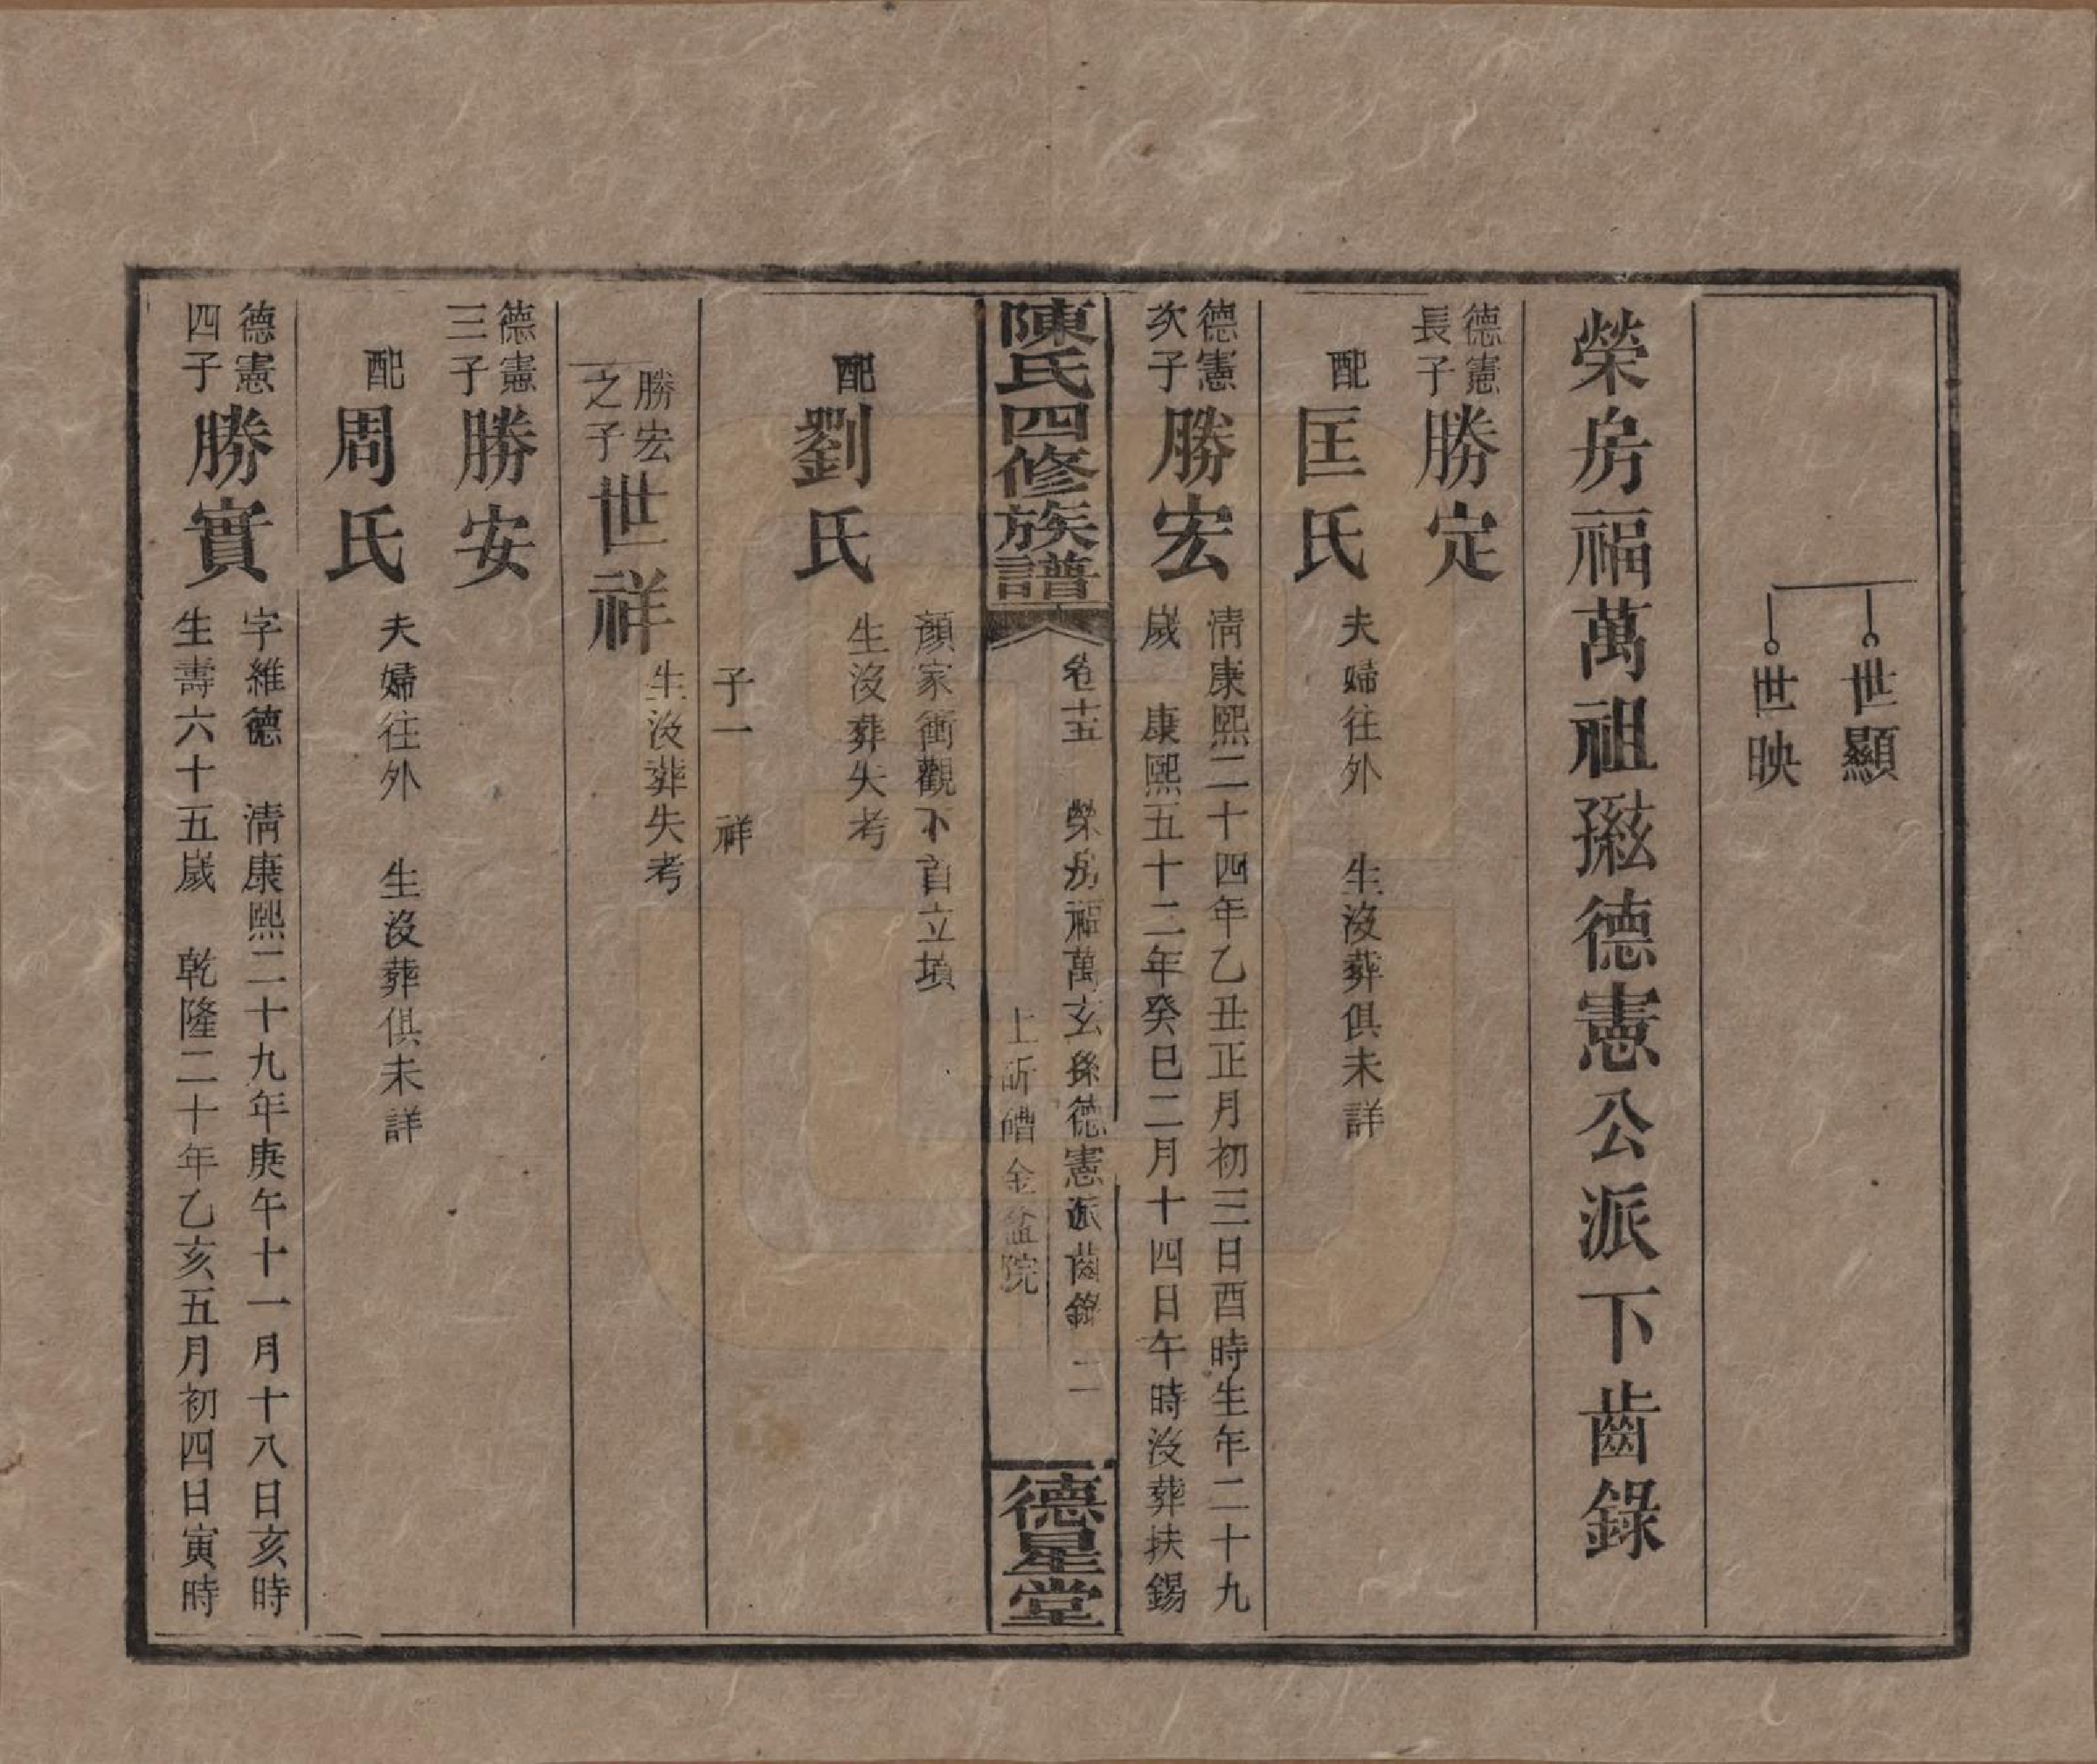 世顯
世映
榮房福萬祖𤣥孫德憲公派下齒錄
德憲
長子
勝定
配
匡氏
夫婦往外　生沒葬俱未詳
德憲
次子
勝宏
清康熙二十四年乙丑正月初三日酉時生年二十九
歲　康熙五十二年癸巳二月十四日午時沒葬扶錫
陳氏四修族譜
卷十五　榮房福萬玄孫德憲派齒錄　二
上訢嘈金盆院
德星堂
顏家衝觀下首立墳
配
劉氏
生沒葬失考
子一　祥
勝宏
之子
世祥
生沒葬失考
德憲
三子
勝安
配
周氏
夫婦往外　生沒葬俱未詳
德憲
四子
勝實
字維德　清康熙二十九年庚午十一月十八日亥時
生壽六十五歲　乾隆二十年乙亥五月初四日寅時